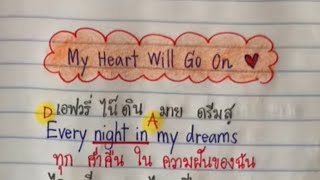 My Heart Will Go On
D เอฟวรี่ ไน๊ท อิน A มาย ดรีมส
Every night in my dreams
ทุก ค่ำคืน ใน ความฝันของฉัน